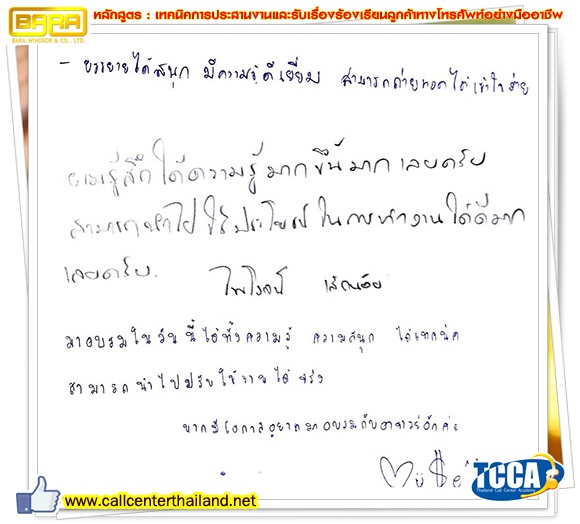 BARA
BARA WINDSOR & CO., LTD.
หลักสูตร : เทคนิคการประสานงานและรับเรื่องร้องเรียนลูกค้าทางโทรศัพท์อย่างมืออาชีพ
- บรรยายได้สนุก มีความรู้ดีเยี่ยม สามารถถ่ายทอดได้เข้าใจง่าย
ผมรู้สึกได้ความรู้มากขึ้นมากเลยครับ
สามารถนำไปใช้ประโยชน์ในการทำงานได้ดีมาก
เลยครับ.
ไพโรจน์
มาอบรมในวันนี้ได้ทั้งความรู้ ความสนุก ได้เทคนิค
สามารถนำไปปรับใช้งานได้จริง
หากมีโอกาสอยากมาอบรมกับอาจารย์อีกค่ะ
TCCA
Thailand Call Center Academy
www.callcenterthailand.net